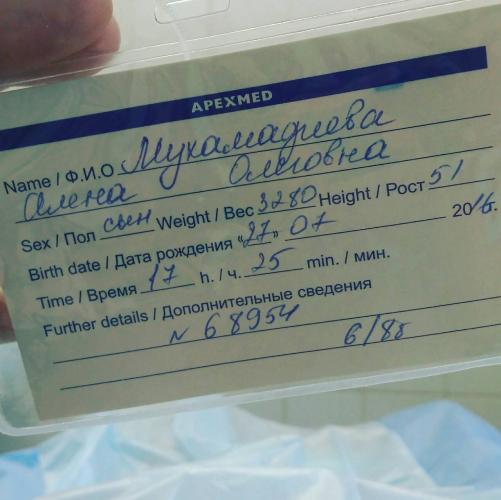 APEXMED
Name / Ф.И.О Мухамадиева
Алена Олеговна
Sex / Пол сын Weight / Вес 3280 Height / Рост 51
Birth date / Дата рождения "27" 07 2016.
Time / Время 17 h. / ч. 25 min. / мин.
Further details / Дополнительные сведения
N 68954
6/8б